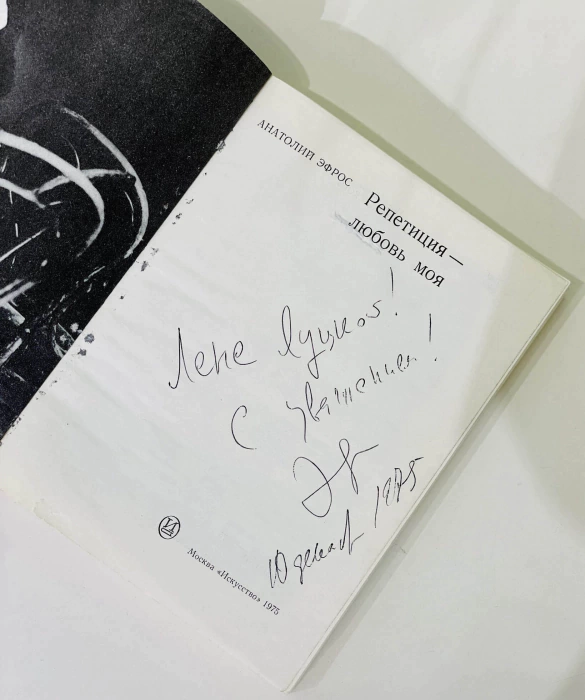 АНАТОЛИЙ ЭФРОС
Репетиция —
любовь моя
Лене Луцкой!
С уважением!
10 декаб 1975
Москва «Искусство» 1975